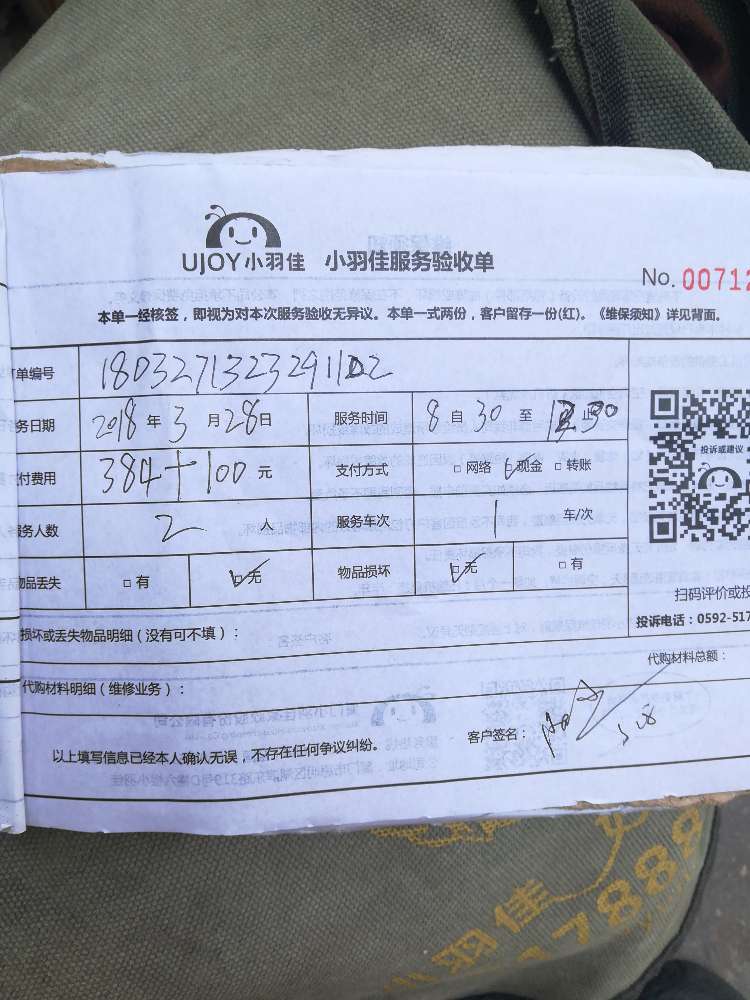 UJOY小羽佳 小羽佳服务验收单
No. 00712
本单一经核签，即视为对本次服务验收无异议。本单一式两份，客户留存一份(红)。《维保须知》详见背面。
单编号 1803271323291102
务日期 2018 年 3 月 28 日 服务时间 8 自 30 至 止 30
付费用 384+100 元 支付方式 □ 网络 ☑ 现金 □ 转账
务人数 2 人 服务车次 1 车/次
物品丢失 □ 有 ☑ 无 物品损坏 ☑ 无 □ 有
投诉或建议
扫码评价或投
投诉电话：0592-517
损坏或丢失物品明细（没有可不填）：
代购材料总额：
代购材料明细（维修业务）：
以上填写信息已经本人确认无误，不存在任何争议纠纷。
客户签名：
小羽佳
17889